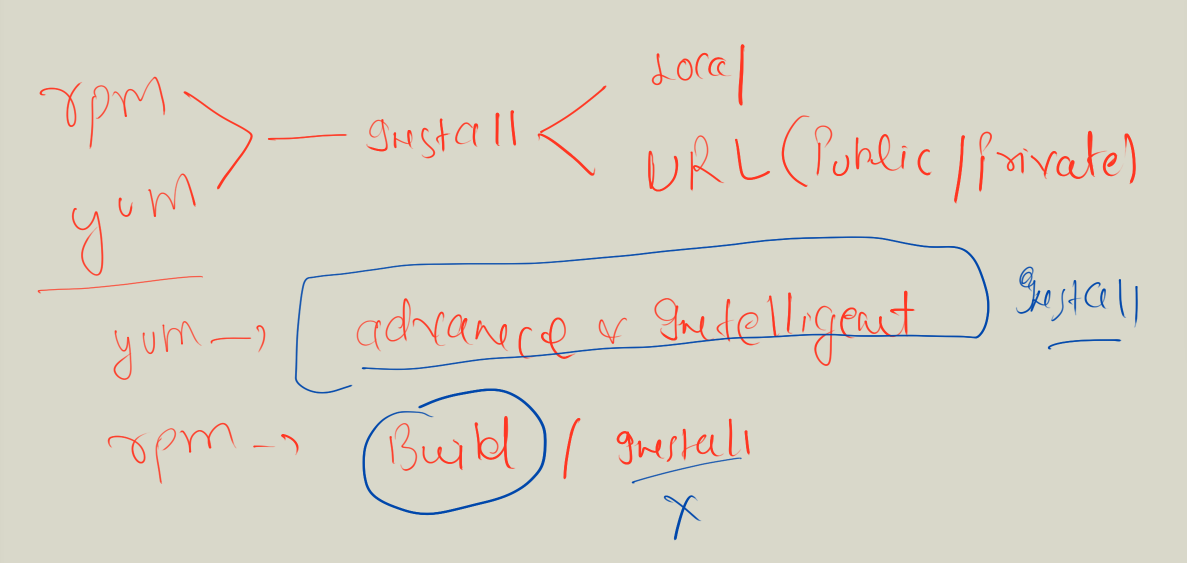 rpm
yum
Install
Local
URL (Public / Private)
yum → advance & Intelligent Install
rpm → Build / Install
X